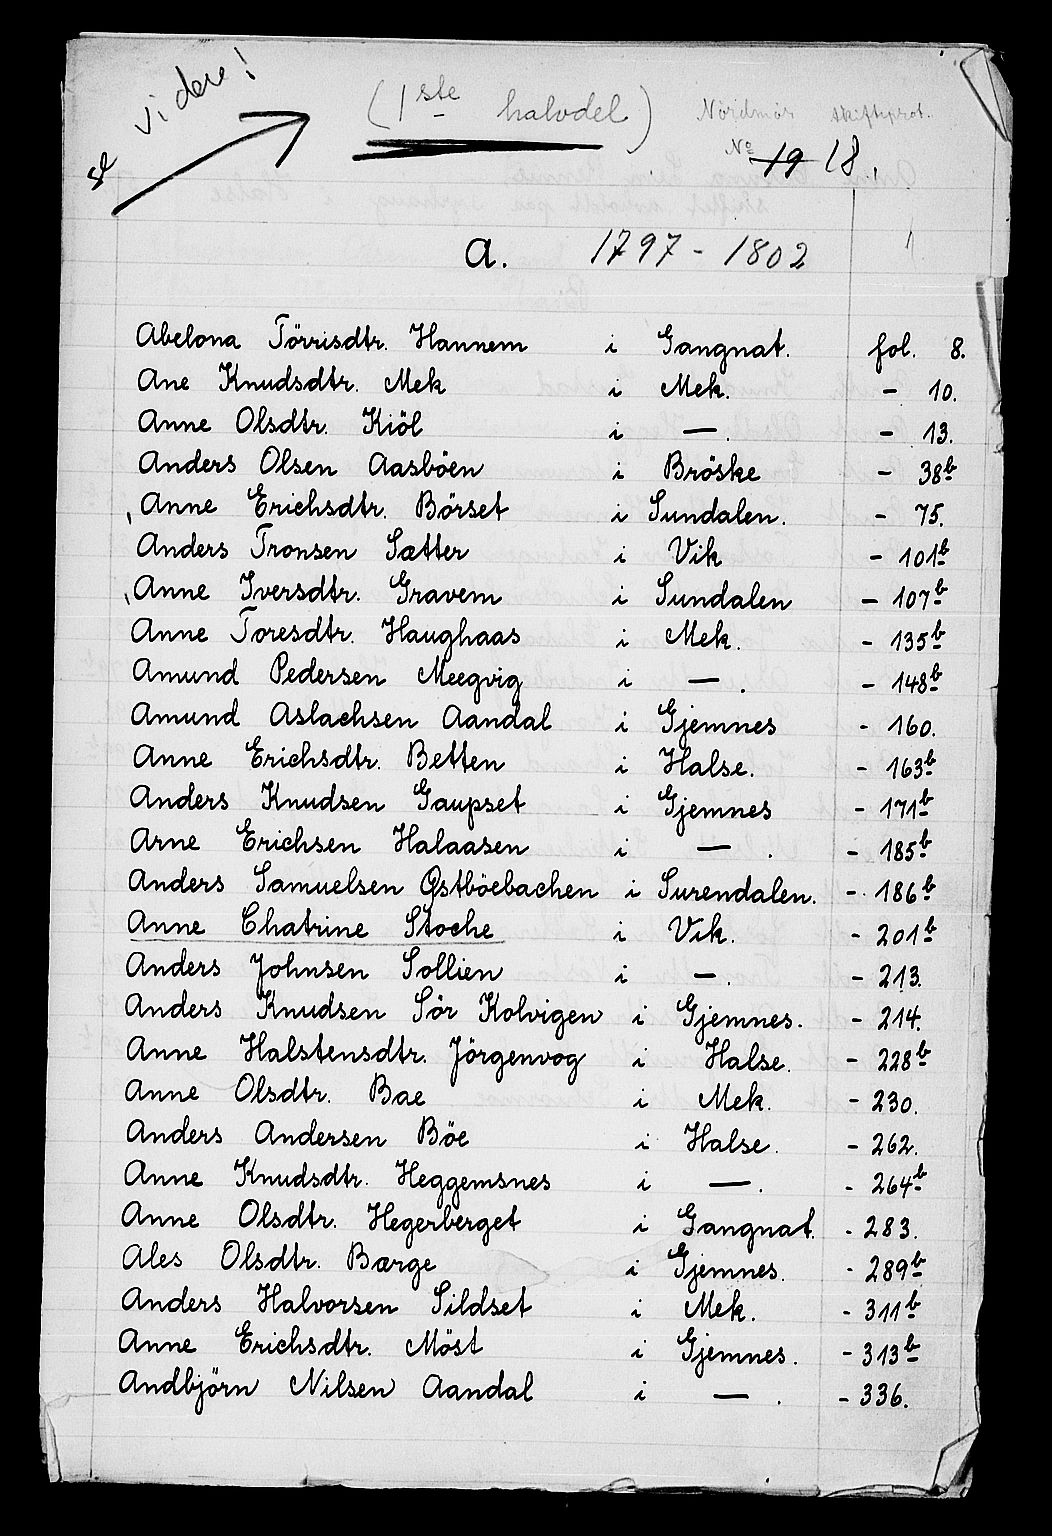 se videre!
(1ste halvdel)
Nordmør skifteprot.
No 19 18.
A. 1797 - 1802
Abelona Törrisdtr. Hannem i Gangnat. fol. 8.
Ane Knudsdtr. Mek i Mek. - 10.
Anne Olsdtr. Kiöl i —. - 13.
Anders Olsen Aasböen i Bröske - 38b
Anne Erichsdtr. Börset i Sundalen. - 75.
Anders Tronsen Sætter i Vik - 101b
Anne Iversdtr. Gravem i Sundalen - 107b
Anne Toresdtr. Haughaas i Mek. - 135b
Amund Pedersen Meegvig i —. - 148b
Amund Aslachsen Aandal i Gjemnes - 160.
Anne Erichsdtr. Betten i Halse. - 163b
Anders Knudsen Gaupset i Gjemnes - 171b
Arne Erichsen Halaasen i —. - 185b
Anders Samuelsen Østböebachen i Surendalen. - 186b
Anne Chatrine Stoche i Vik. - 201b
Anders Johnsen Sollien i —. - 213.
Anders Knudsen Sör Kolvigen i Gjemnes. - 214.
Anne Halstensdtr. Jörgenvog i Halse. - 228b
Anne Olsdtr. Bae i Mek. - 230.
Anders Andersen Böe i Halse. - 262.
Anne Knudsdtr. Heggemsnes i —. - 264b
Anne Olsdtr. Hegerberget i Gangnat. - 283.
Ales Olsdtr. Bærge i Gjemnes. - 289b
Anders Halvorsen Sildset i Mek. - 311b
Anne Erichsdtr. Möst i Gjemnes. - 313b
Andbjörn Nilsen Aandal i —. - 336.